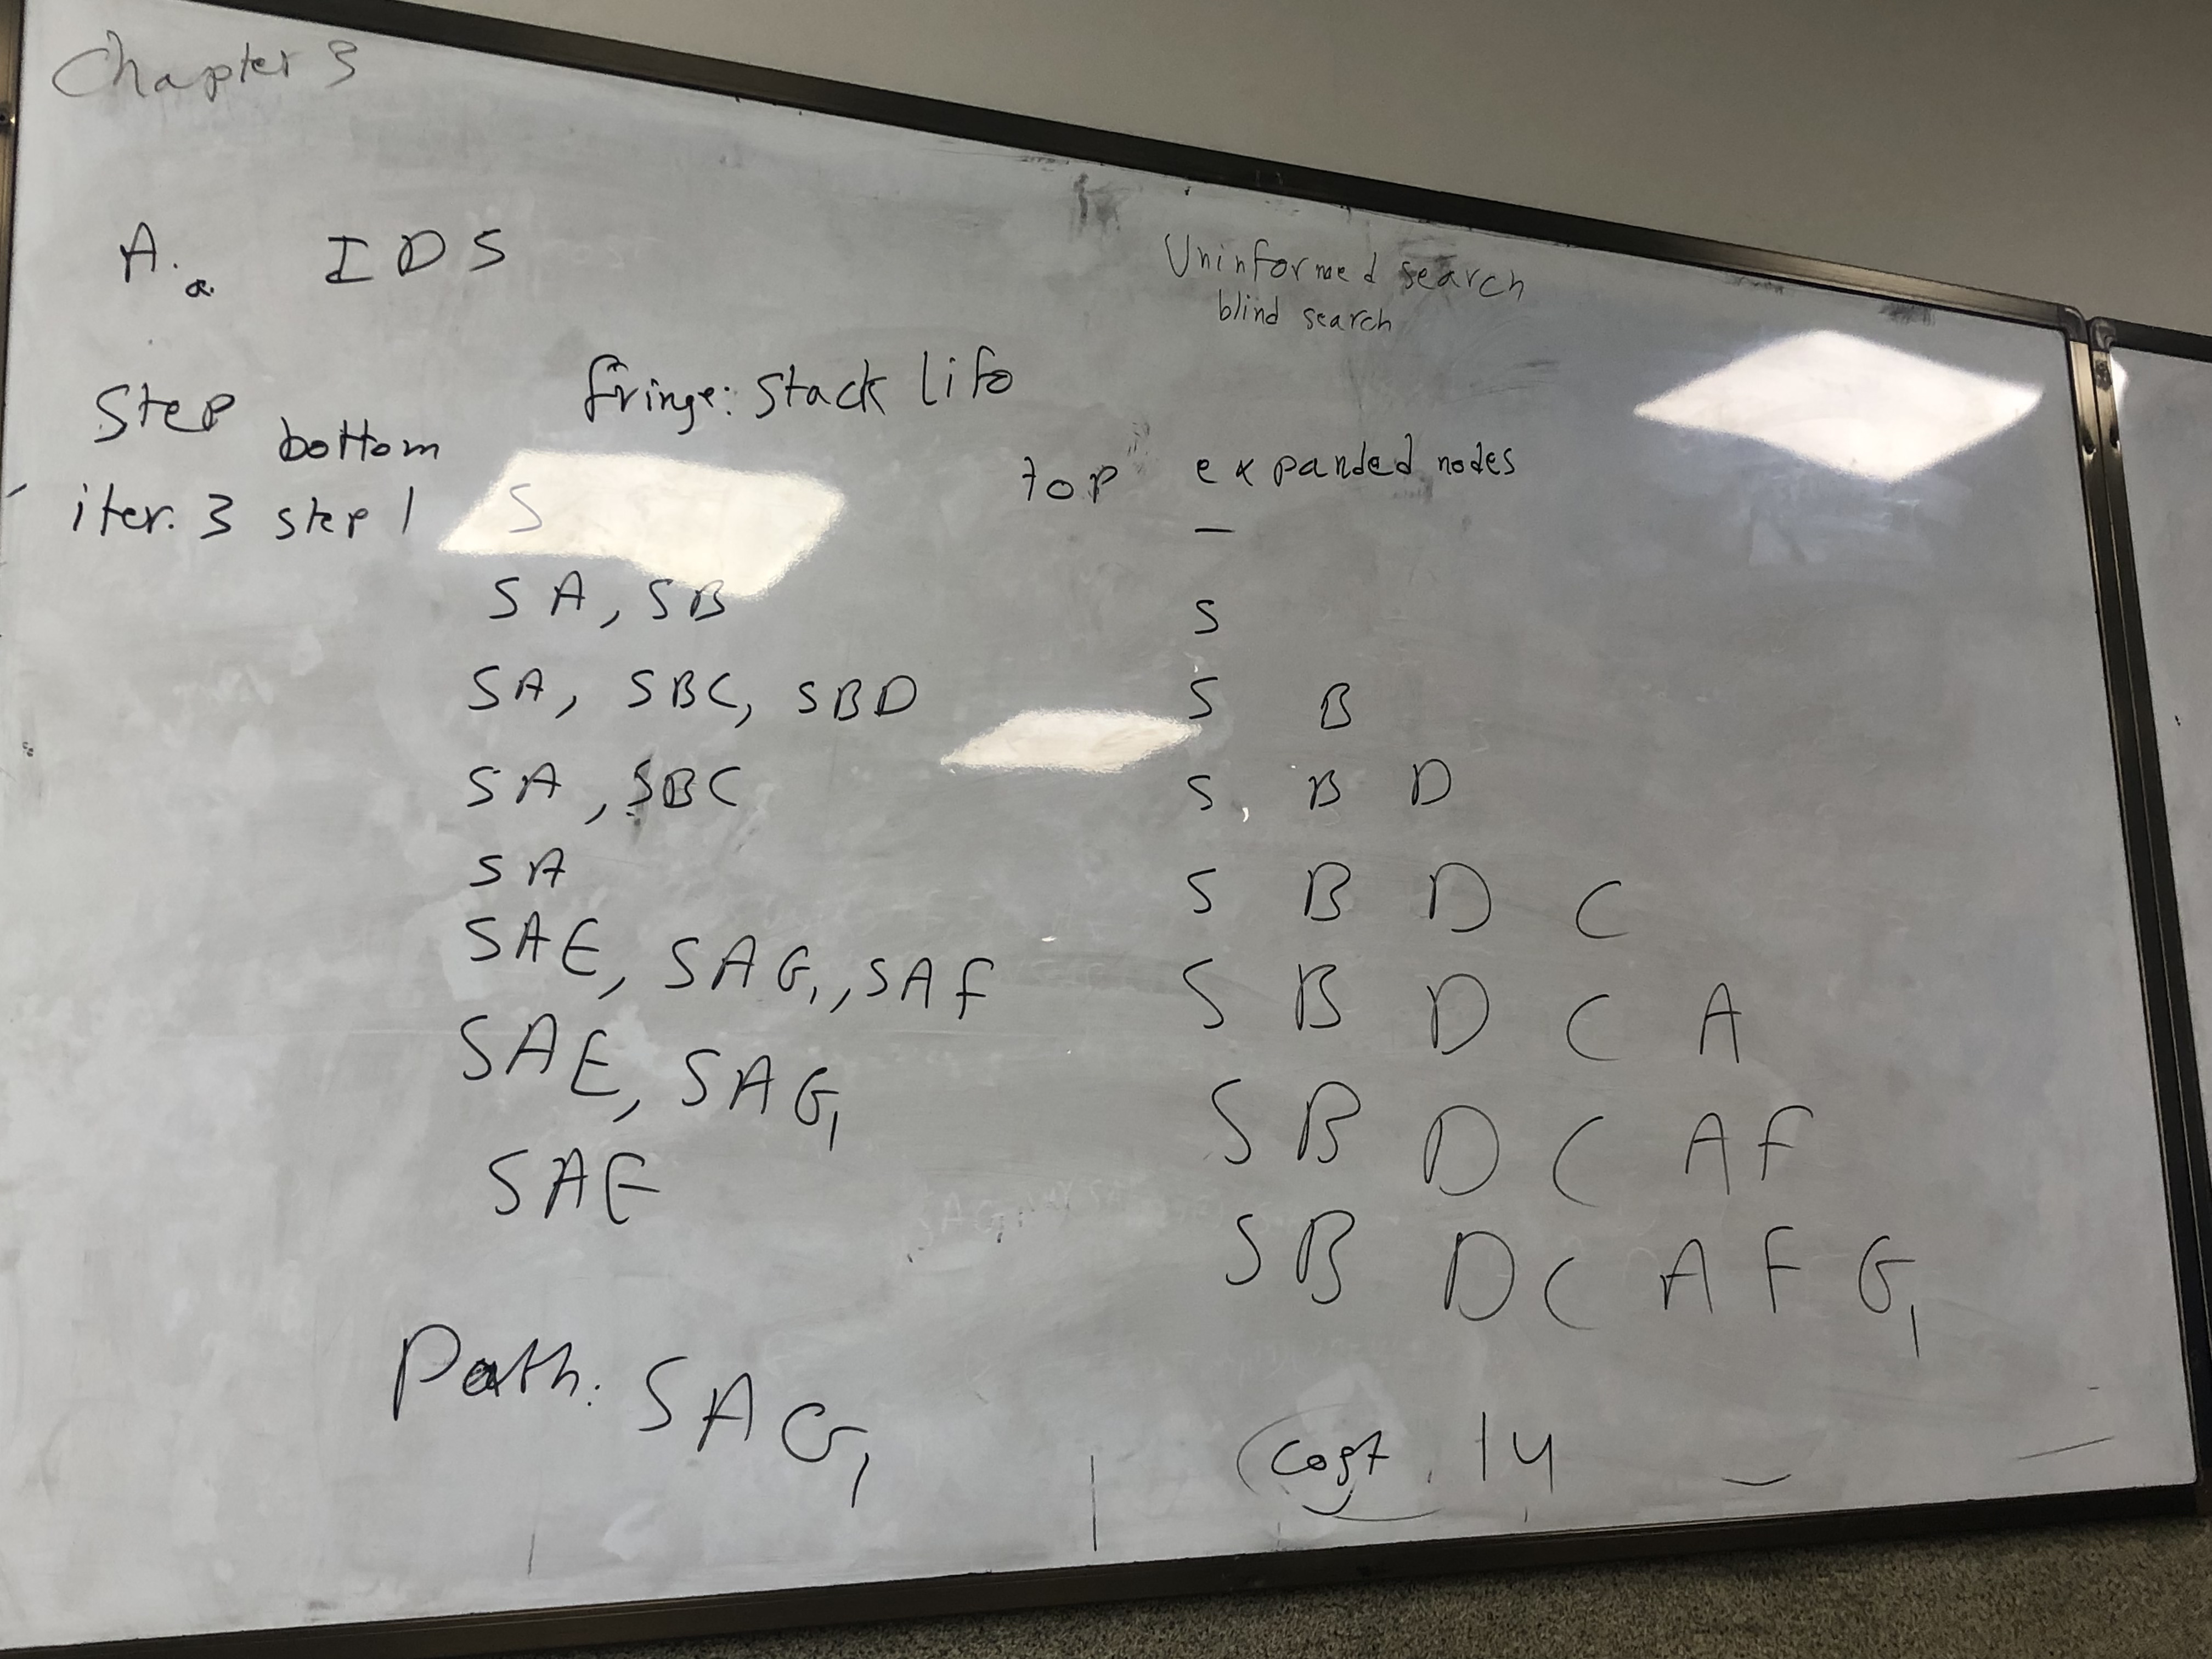 Chapter 3
A.a. IDS
Uninformed search
blind search
Step
fringe: Stack lifo
bottom
top
expanded nodes
iter. 3 step 1 S —
SA, SB S
SA, SBC, SBD S B
SA, SBC S, B D
SA S B D C
SAE, SAG1, SAF S B D C A
SAE, SAG1 S B D C A F
SAE S B D C A F G1
Path: SAG1
Cost. 14